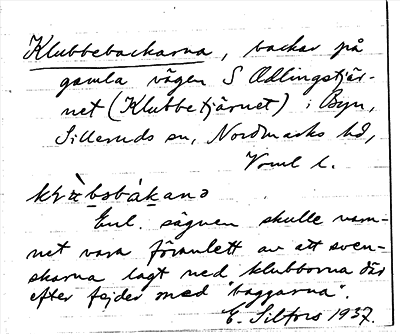 Klubbebackarna, backar på
gamla vägen S Ödlingstjär-
net (Klubbetjärnet) i Byn,
Silleruds sn, Nordmarks hd,
Vrml l.
Enl. sägnen skulle nam-
net vara föranlett av att sven-
skarna lagt ned klubborna där
efter fejder med "baggarna".
E. Silfors 1937.